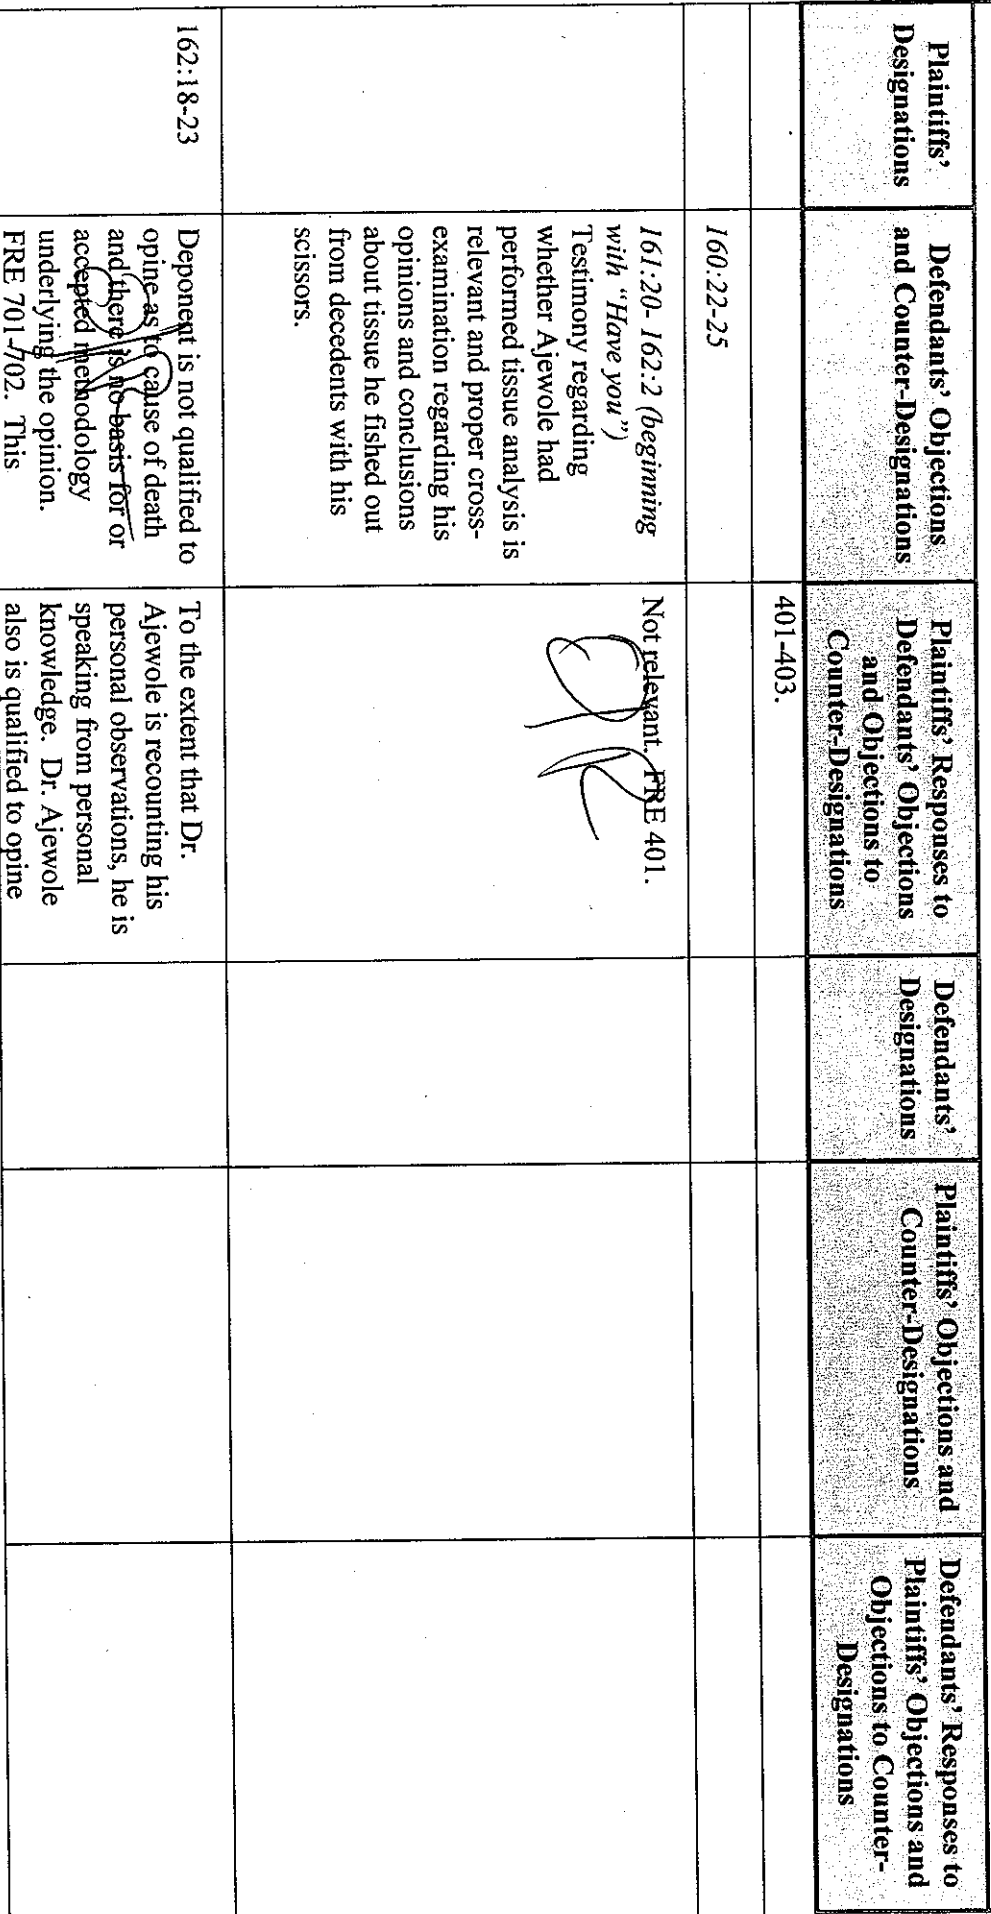 Plaintiffs'
Designations
Defendants' Objections
and Counter-Designations
Plaintiffs' Responses to
Defendants' Objections
and Objections to
Counter-Designations
Defendants'
Designations
Plaintiffs' Objections and
Counter-Designations
Defendants' Responses to
Plaintiffs' Objections and
Objections to Counter-
Designations
401-403.
160:22-25
161:20- 162:2 (beginning
with "Have you")
Testimony regarding
whether Ajewole had
performed tissue analysis is
relevant and proper cross-
examination regarding his
opinions and conclusions
about tissue he fished out
from decedents with his
scissors.
Not relevant. FRE 401.
162:18-23
Deponent is not qualified to
opine as to cause of death
and there is no basis for or
accepted methodology
underlying the opinion.
FRE 701-702. This
To the extent that Dr.
Ajewole is recounting his
personal observations, he is
speaking from personal
knowledge. Dr. Ajewole
also is qualified to opine